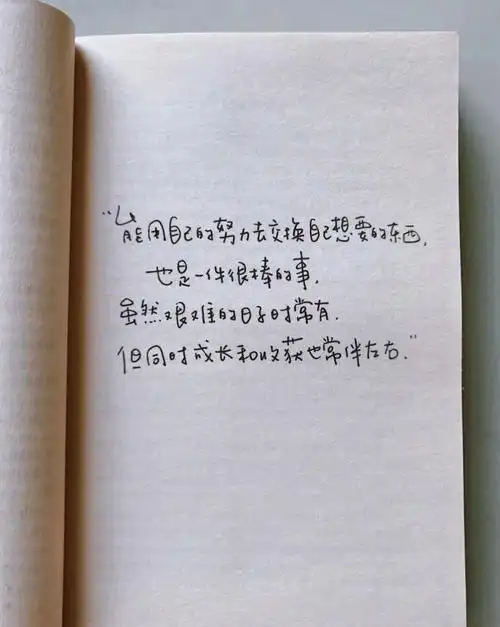 “能用自己的努力去交换自己想要的东西,
也是一件很棒的事,
虽然艰难的日子时常有.
但同时成长和收获也常伴左右.”